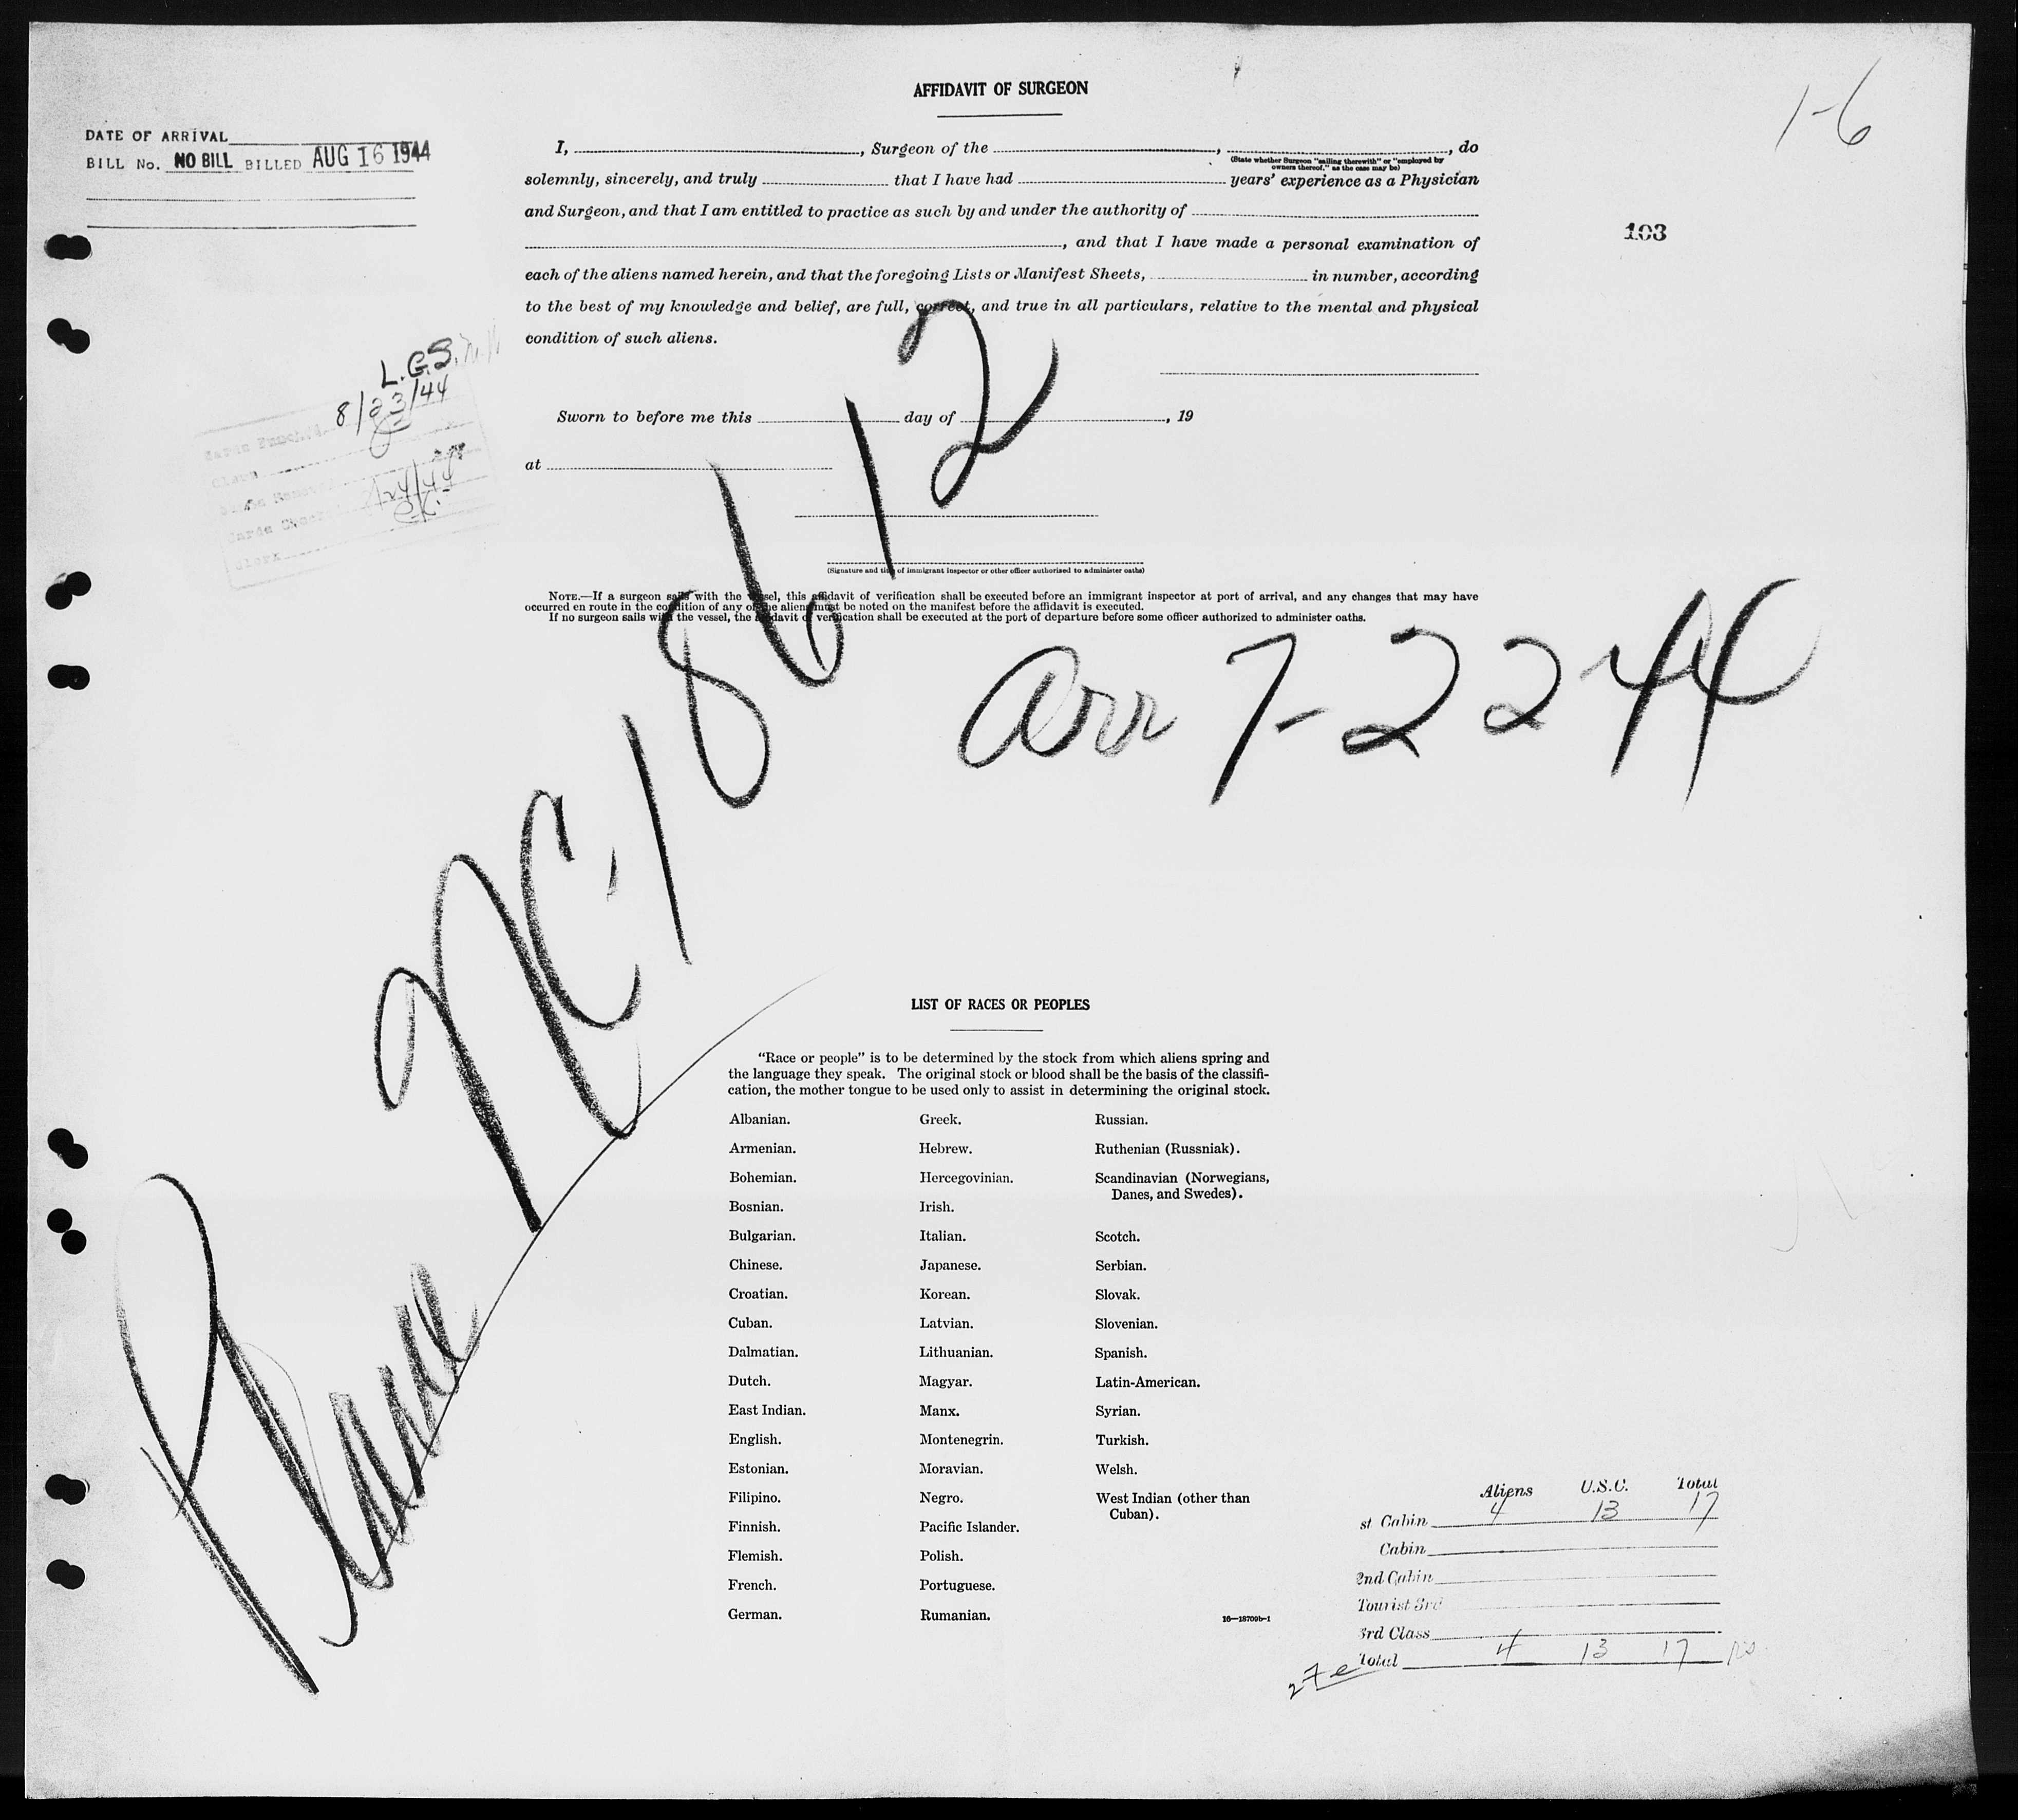 AFFIDAVIT OF SURGEON
1-6
DATE OF ARRIVAL
BILL No. NO BILL BILLED AUG 16 1944
I, , Surgeon of the , , do
(State whether Surgeon "sailing therewith" or "employed by
owners thereof," as the case may be)
solemnly, sincerely, and truly that I have had years' experience as a Physician
and Surgeon, and that I am entitled to practice as such by and under the authority of
103
, and that I have made a personal examination of
each of the aliens named herein, and that the foregoing Lists or Manifest Sheets, in number, according
to the best of my knowledge and belief, are full, correct, and true in all particulars, relative to the mental and physical
condition of such aliens.
L.G.S.
8/23/44
Sworn to before me this day of , 19
at
(Signature and title of immigrant inspector or other officer authorized to administer oaths)
NOTE.—If a surgeon sails with the vessel, this affidavit of verification shall be executed before an immigrant inspector at port of arrival, and any changes that may have
occurred en route in the condition of any of the aliens must be noted on the manifest before the affidavit is executed.
If no surgeon sails with the vessel, the affidavit of verification shall be executed at the port of departure before some officer authorized to administer oaths.
Plane NC-18612
Arr 7-22-44
LIST OF RACES OR PEOPLES
"Race or people" is to be determined by the stock from which aliens spring and
the language they speak. The original stock or blood shall be the basis of the classifi-
cation, the mother tongue to be used only to assist in determining the original stock.
Albanian.
Armenian.
Bohemian.
Bosnian.
Bulgarian.
Chinese.
Croatian.
Cuban.
Dalmatian.
Dutch.
East Indian.
English.
Estonian.
Filipino.
Finnish.
Flemish.
French.
German.
Greek.
Hebrew.
Hercegovinian.
Irish.
Italian.
Japanese.
Korean.
Latvian.
Lithuanian.
Magyar.
Manx.
Montenegrin.
Moravian.
Negro.
Pacific Islander.
Polish.
Portuguese.
Rumanian.
Russian.
Ruthenian (Russniak).
Scandinavian (Norwegians,
Danes, and Swedes).
Scotch.
Serbian.
Slovak.
Slovenian.
Spanish.
Latin-American.
Syrian.
Turkish.
Welsh.
West Indian (other than
Cuban).
16—18709b-1
Aliens U.S.C. Total
st Cabin 4 13 17
Cabin
2nd Cabin
Tourist 3rd
3rd Class
Total 4 13 17